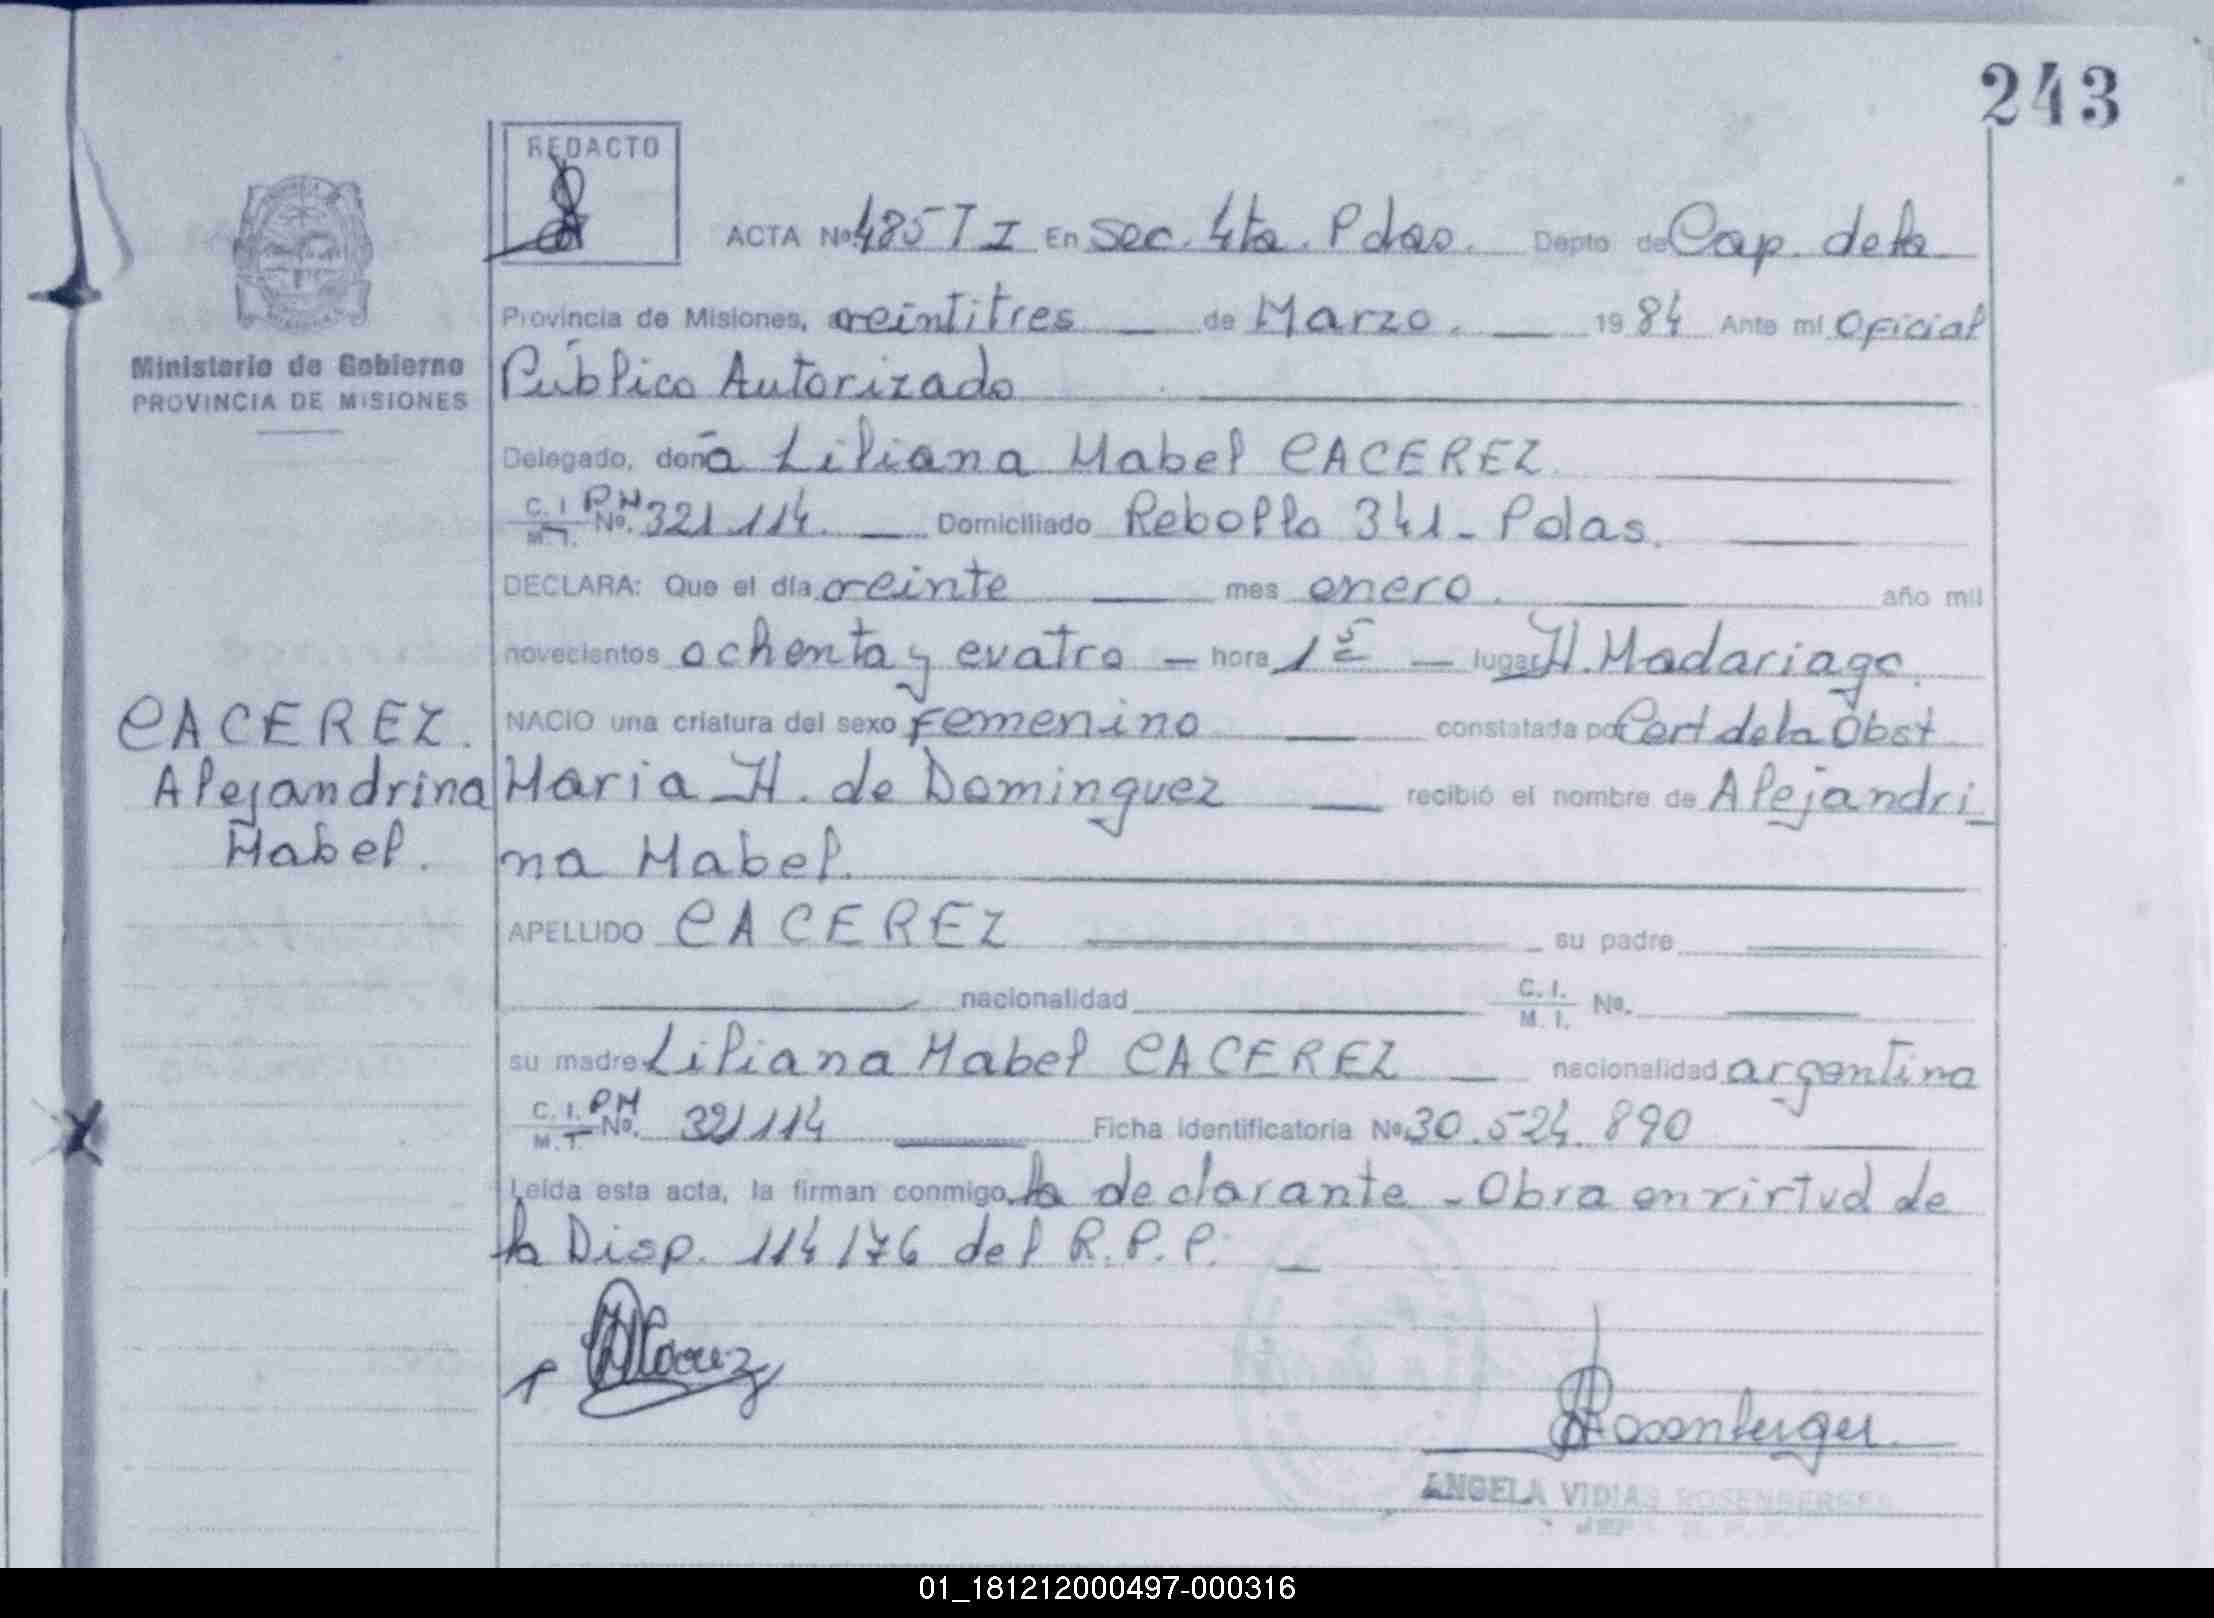 243
REDACTO
ACTA No. 485 T I En Sec. 4ta. Pdas. Depto de Cap. de la
Provincia de Misiones, veintitres — de Marzo. — 19 84 Ante mi Oficial
Ministerio de Gobierno
PROVINCIA DE MISIONES
Público Autorizado
Delegado, doña Liliana Mabel CACEREZ.
C. I. M. I. PM No. 321.114. — Domiciliado Rebollo 341 - Pdas.
DECLARA: Que el día veinte — mes enero. — año mil
novecientos ochenta y cuatro — hora 1 5 — lugar H. Madariaga.
CACEREZ.
Alejandrina
Mabel.
NACIO una criatura del sexo femenino — constatada por Cert de la Obst
Maria H. de Dominguez — recibió el nombre de Alejandri
na Mabel.
APELLIDO CACEREZ — su padre —
— nacionalidad — C. I. M. I. No. —
su madre Liliana Mabel CACEREZ — nacionalidad argentina
C. I. M. I. PM No. 321114 — Ficha identificatoria No. 30.524.890
Leída esta acta, la firman conmigo, la declarante - Obra en virtud de
la Disp. 114/76 del R.P.P. —
Rosenberger
ANGELA VIDIAS ROSENBERGER
01_181212000497-000316